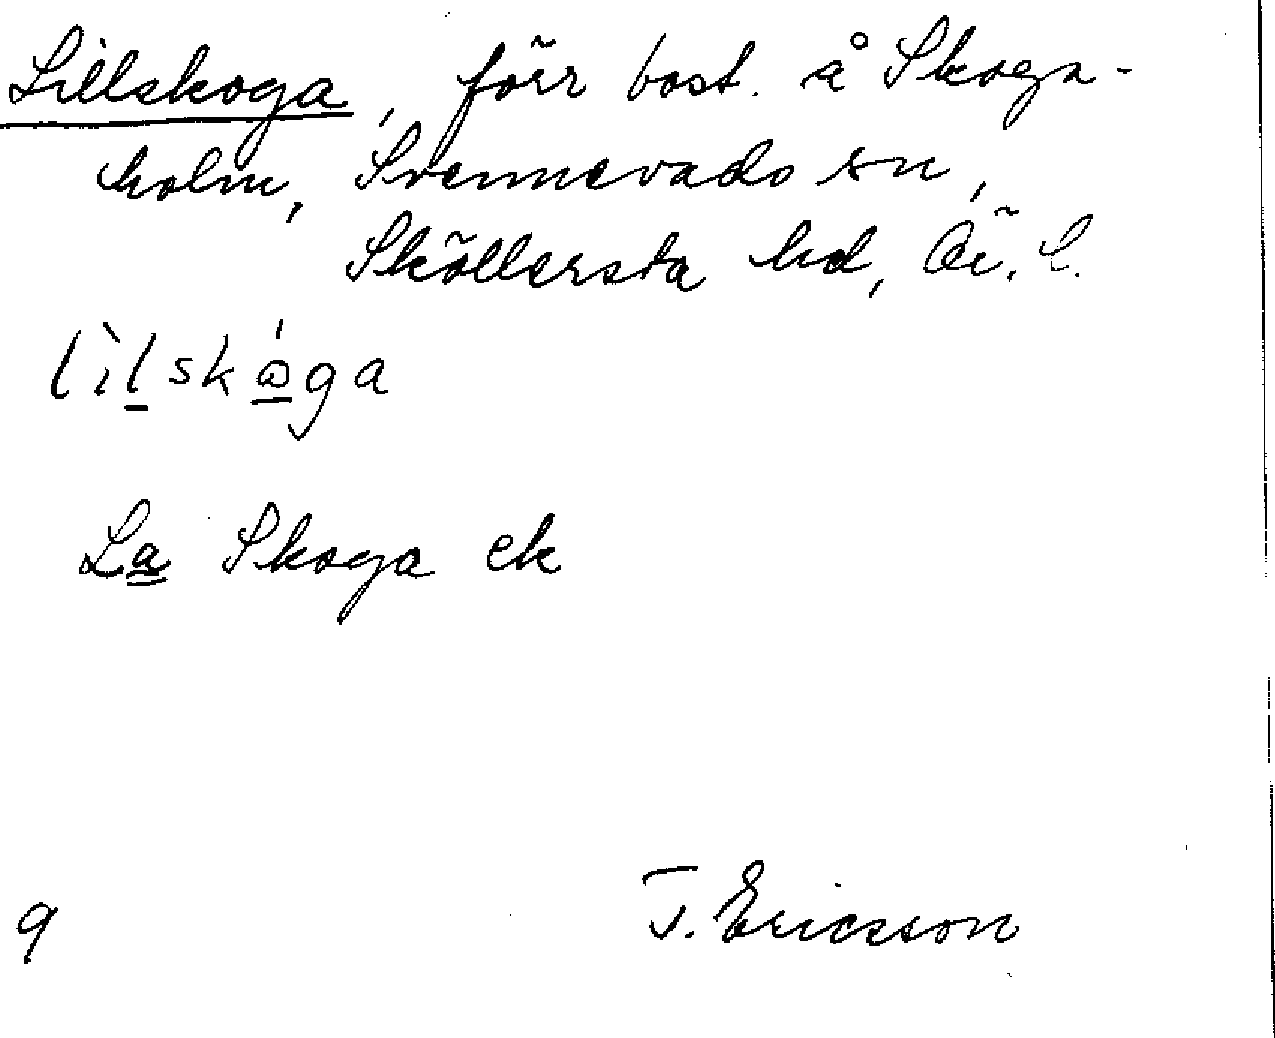 Lillskoga, förr bost. å Skoga-
holm, Svennevads sn,
Sköllersta hd, Ör. l.
lìlskåga
La Skoga ek
9 T. Ericsson